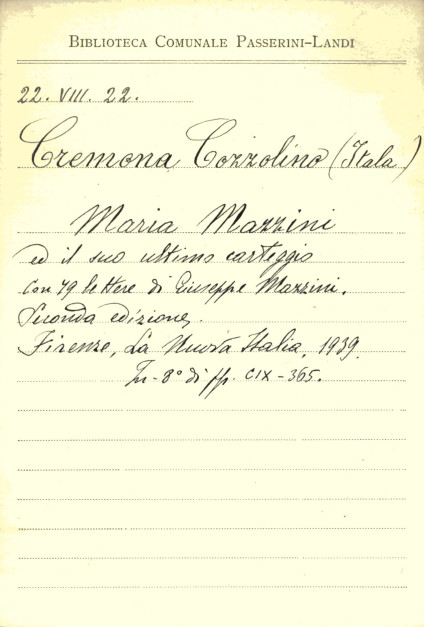 BIBLIOTECA COMUNALE PASSERINI-LANDI
22. VIII. 22.
Cremona Cozzolino (Itala)
Maria Mazzini
ed il suo ultimo carteggio
Con 79 lettere di Giuseppe Mazzini.
Seconda edizione.
Firenze, La Nuova Italia, 1939.
In-8° di pp. CIX-365.